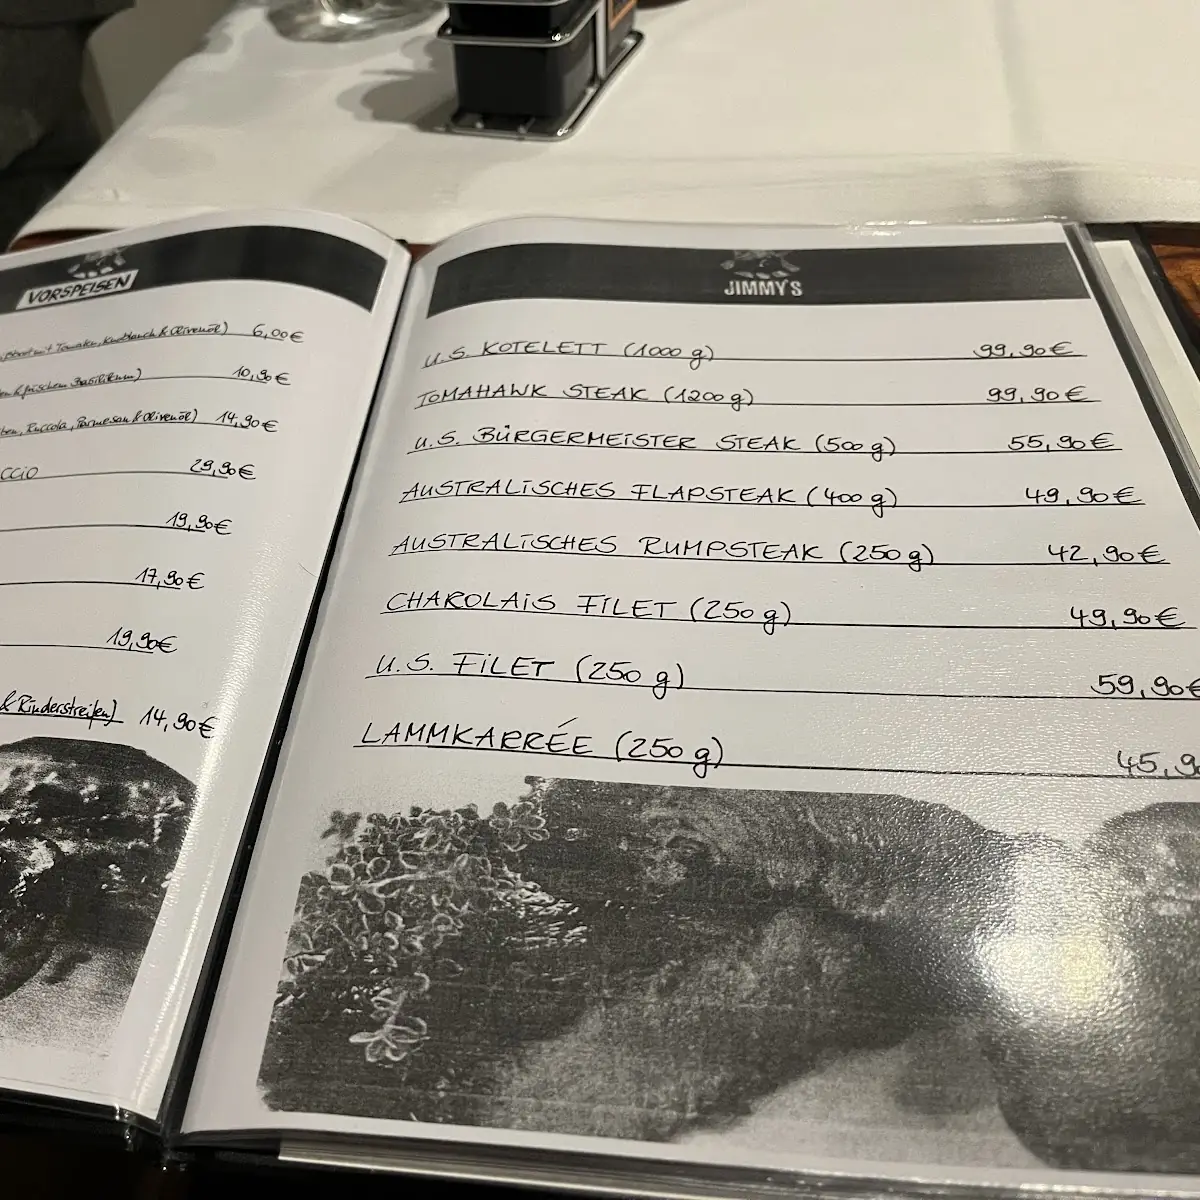 VORSPEISEN
Tomaten, Knoblauch & Olivenöl) 6,00€
& frischem Basilikum) 10,90€
Ruccola, Parmesan & Olivenöl) 14,90€
CCIO 29,90€
19,90€
17,90€
19,90€
& Rinderstreifen) 14,90€
JIMMY'S
U.S. KOTELETT (1000 g) 99,90€
TOMAHAWK STEAK (1200 g) 99,90€
U.S. BÜRGERMEISTER STEAK (500 g) 55,90€
AUSTRALISCHES FLAPSTEAK (400 g) 49,90€
AUSTRALISCHES RUMPSTEAK (250 g) 42,90€
CHAROLAIS FILET (250 g) 49,90€
U.S. FILET (250 g) 59,90€
LAMMKARRÉE (250 g) 45,9